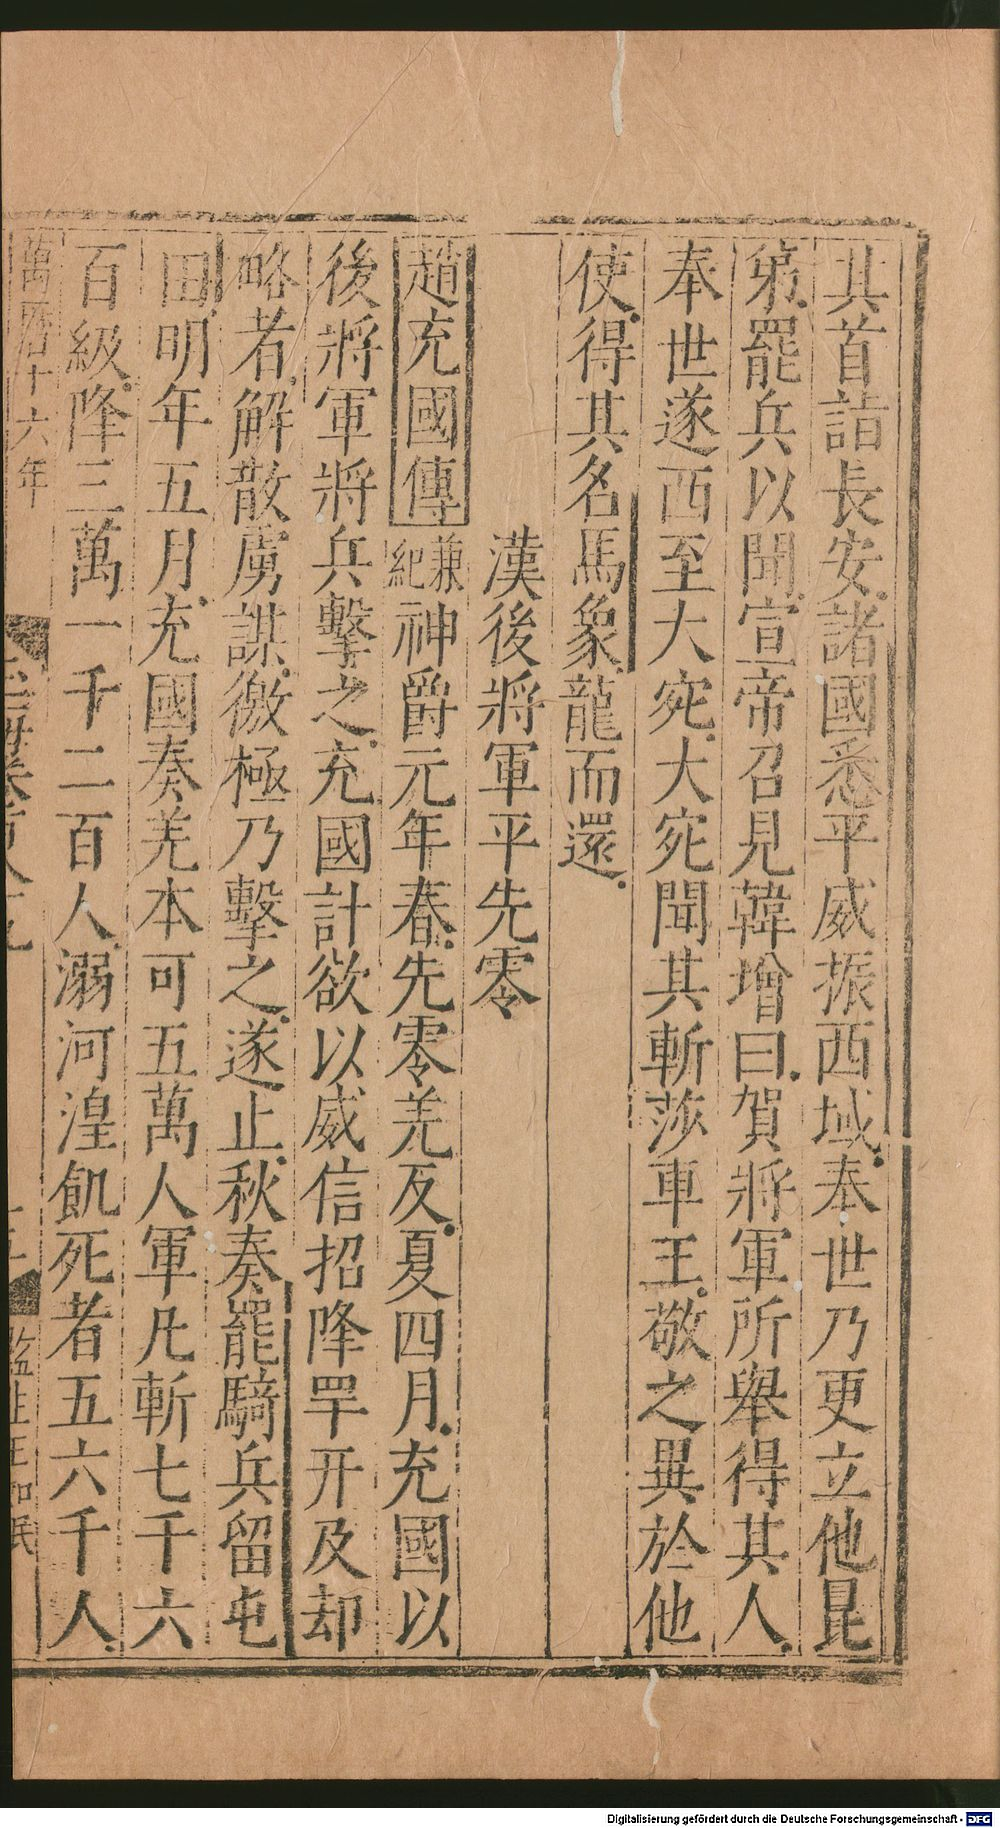 其首詣長安諸國悉平威振西域奉世乃更立他昆
弟罷兵以聞宣帝召見韓增曰賀將軍所舉得其人
奉世遂西至大宛大宛聞其斬莎車王敬之異於他
使得其名馬象龍而還
漢後將軍平先零
趙充國傳兼紀神爵元年春先零羌反夏四月充國以
後將軍將兵擊之充國計欲以威信招降罕幵及却
略者解散虜謀徼極乃擊之遂止秋奏罷騎兵留屯
田明年五月充國奏羌本可五萬人軍凡斬七千六
百級降三萬一千二百人溺河湟飢死者五六千人
萬曆十六年
玉海卷百八十九
監生王
Digitalisierung gefördert durch die Deutsche Forschungsgemeinschaft - DFG